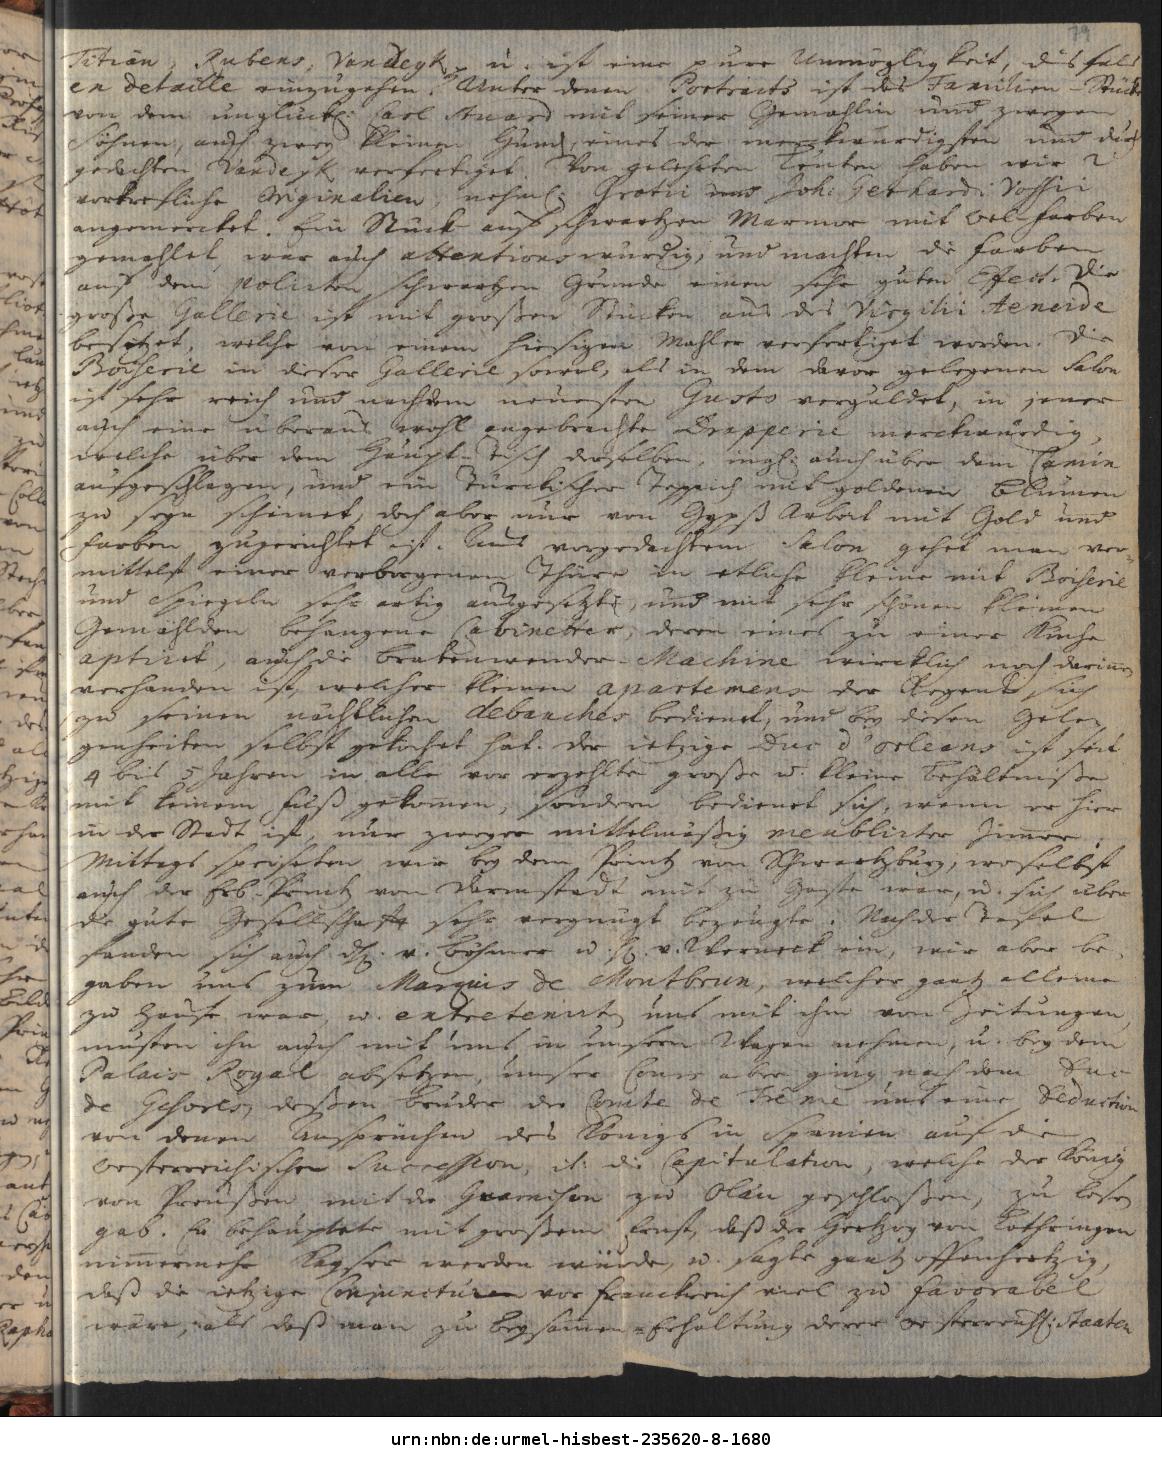 79
Titian, Rubens, Vandeyk, u. ist eine pure Unmögligkeit, dis fals
en detaille einzugehen. Unter denen Portraits ist das Familien-Stück
von dem unglückl: Carl Stuard mit seiner Gemahlin und zweyen
Söhnen, auch zwey kleinen Hund, eines der merckwürdigsten und durch
gedachten Vandeyk verfertiget. Von gelehrten Leuten haben wir 2
vortrefliche Originalien, nehml: Grotii und Joh: Gerhardi Vossii
angemercket. Ein Stück auf schwartzen Marmor mit Oel-Farben
gemahlet, war auch attentions würdig, und machten die Farben
auf dem polirten schwartzen Grunde einen sehr guten Effect. Die
große Gallerie ist mit großen Stücken aus des Virgilii Aeneide
besetzet, welche von einem hiesigen Mahler verfertiget worden. Die
Boiserie in dieser Gallerie sowol, als in dem davor gelegenen Salon
ist sehr reich und nach dem neuesten Gusto verguldet, in jener
auch eine überaus wohl angebrachte Drapperie merckwürdig,
welche über dem Haupt-Tisch derselben, ingl: auch über dem Camin
aufgeschlagen, und ein Türckischer Teppich mit goldenen Blumen
zu seyn scheinet, doch aber nur von Gypß Arbeit mit Gold und
Farben zugerichtet ist. Aus vorgedachtem Salon gehet man ver-
mittelst einer verborgenen Thüre in etliche kleine mit Boiserie
und Spiegeln sehr artig ausgesetzte, und mit sehr schönen kleinen
Gemählden behangene Cabinetter, deren eines zu einer Küche
aptiret, auch die bratenwender-Machine wircklich noch darinn
verhanden ist, welcher kleinen apartemens der Regent sich
zu seinen nächtlichen debauchés bedienet, und bey diesen Gele-
genheiten selbst gekochet hat. Der ietzige Duc d'Orleans ist seit
4 bis 5 Jahren in alle vor erzehlte große u. kleine Behältniße
mit keinem Fuß gekommen, sondern bedienet sich, wenn er hier
in der Stadt ist, nur zweyer mittelmäßig meublirter Zimmer.
Mittags speiseten wir bey dem Printz von Schwartzburg, woselbst
auch der Erb-Printz von Darmstadt mit zu Gaste war, u. sich über
die gute Gesellschafft sehr vergnügt bezeugte. Nach der Taffel
fanden sich auch H. v. Böhmer u. H. v. Werneck ein, wir aber be-
gaben uns zum Marquis de Montbrun, welcher gantz alleine
zu Hause war, u. entretenirten uns mit ihm von Zeitungen,
musten ihn auch mit uns in unsern Wagen nehmen, u. bey dem
Palais Royal absetzen, unser Cours aber ging nach dem Duc
de Gesvres, deßen Bruder der Comte de Treme uns eine Deduction
von denen Ansprüchen des Königs in Spanien auf die
oesterreichischen Succession, it: die Capitulation, welche der König
von Preußen mit der Guarnison zu Olau geschloßen, zu lesen
gab. Er behauptete mit großem Ernst, daß der Hertzog von Lothringen
nimmermehr Kayser werden würde, u. sagte gantz offenhertzig,
daß die ietzige Conjuncturen vor Franckreich viel zu favorabel
wäre, als daß man zu beysammen-Erhaltung derer oesterreichl: Staaten
urn:nbn:de:urmel-hisbest-235620-8-1680